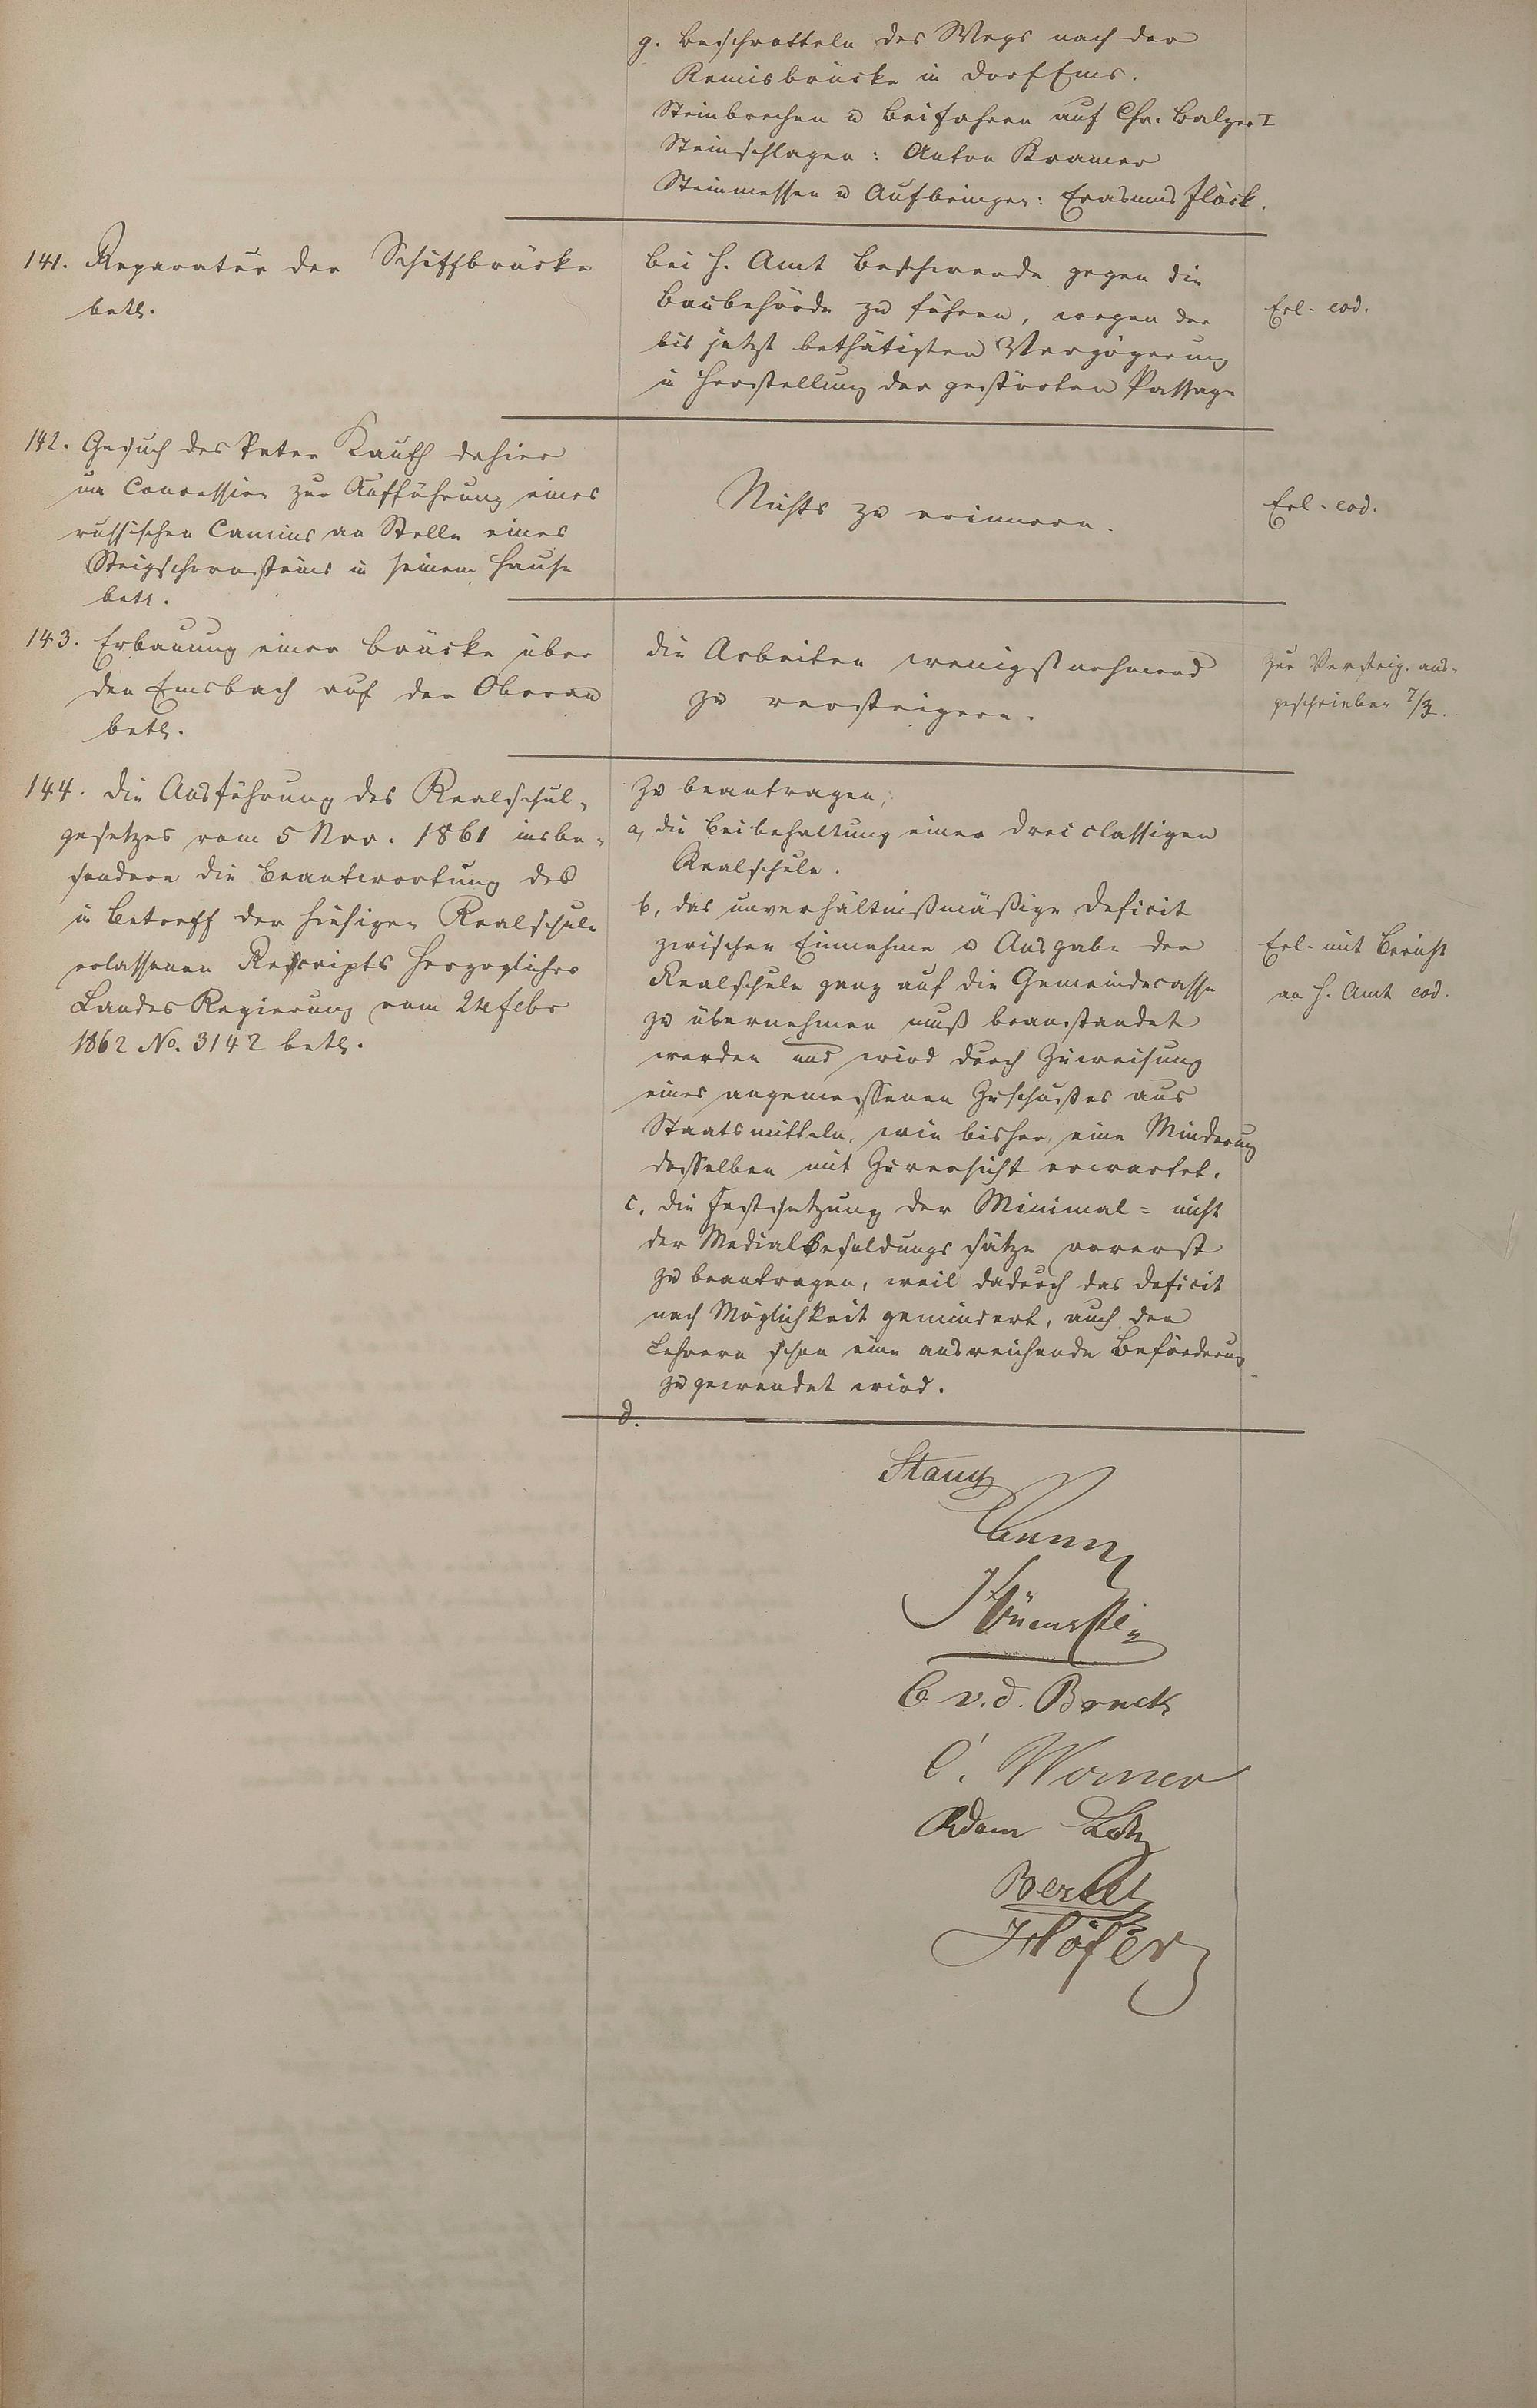 g. Beschrotteln des Wegs nach der
Remisbrücke in Dorf Ems.
Steinbrechen u Beifahren auf Chr. Balzer I
Steinschlagen: Anton Kramer
Steinmessen u Aufbringen: Erasmus Flöck.
141. Reparatur der Schiffbrücke
betr.
Bei H. Amt Beschwerde gegen die
Baubehörde zu führen, wegen der
bis jetzt bethätigten Verzögerung
in Herstellung der gestörten Passage
Erl. eod.
142. Gesuch des Peter Kauth dahier
um Concession zur Aufführung eines
russischen Camins an Stelle eines
Steigschornsteins in seinem Hause
betr.
Nichts zu erinnern.
Erl. eod.
143. Erbauung einer Brücke über
den Emsbach auf der Oberau
betr.
die Arbeiten wenigstnehmend
zu versteigern.
zur Versteig. aus-
geschrieben 7/3.
144. Die Ausführung des Realschul-
gesetzes vom 5 Nov. 1861 insbe-
sondere die Beantwortung des
in Betreff der hiesigen Realschule
erlassenen Rescripts Herzoglicher
Landes Regierung vom 24 Febr
1862 No. 3142 betr.
Zu beantragen,
a, die Beibehaltung einer dreiclassigen
Realschule.
b, das unverhältnißmäßige Deficit
zwischen Einnahme u Ausgabe der
Realschule ganz auf die Gemeindecasse
zu übernehmen muß beanstandet
werden und wird durch Zuweisung
eines angemessenen Zuschußes aus
Staatsmitteln, wie bisher, eine Minderung
desselben mit Zuversicht erwartet.
c. die Festsetzung der Minimal- nicht
der Medialbesoldungssätze vorerst
zu beantragen, weil dadurch das Deficit
nach Möglichkeit gemindert, auch den
Lehrern schon eine ausreichende Beförderung
zugewendet wird.
d.
Erl. mit Bericht
an H. Amt eod.
C v. d. Bruck
C. Werner
Adam
Höfer